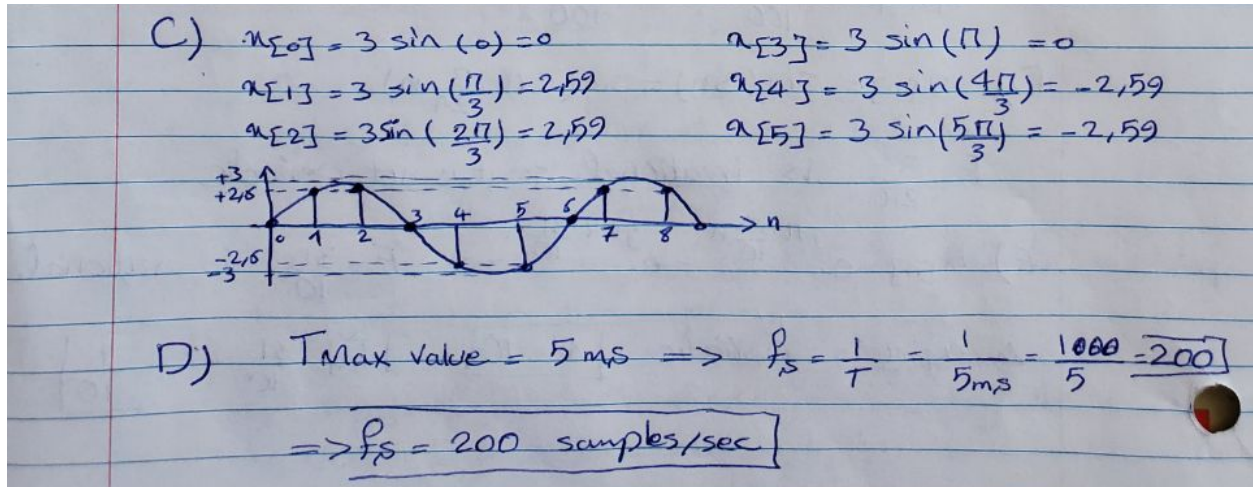 C) x[0] = 3 sin (0) = 0 x[3] = 3 sin(π) = 0
x[1] = 3 sin(π/3) = 2,59 x[4] = 3 sin(4π/3) = -2,59
x[2] = 3 sin(2π/3) = 2,59 x[5] = 3 sin(5π/3) = -2,59
+3
+2,6
0 1 2 3 4 5 6 7 8 n
-2,6
-3
D) TMax value = 5 ms => fs = 1/T = 1/5ms = 1000/5 = 200
=> fs = 200 samples/sec